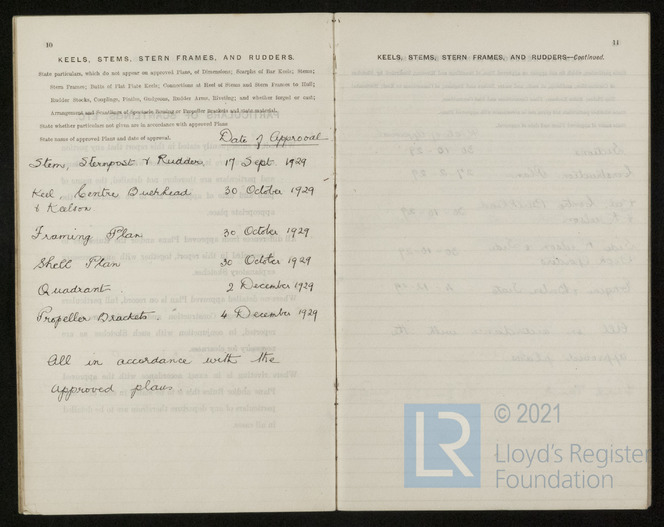 10
KEELS, STEMS, STERN FRAMES, AND RUDDERS.
State particulars, which do not appear on approved Plans, of Dimensions; Scarphs of Bar Keels; Stems;
Stern Frames; Butts of Flat Plate Keels; Connections at Heel of Stems and Stern Frames to Hull;
Rudder Stocks, Couplings, Pintles, Gudgeons, Rudder Arms, Riveting; and whether forged or cast;
Arrangement and Scantlings of Spectacle Bossing or Propeller Brackets and state material.
State whether particulars not given are in accordance with approved Plans
State name of approved Plans and date of approval.
Date of Approval
Stem, Sternpost & Rudder, 17 Sept. 1929
Keel, Centre Bulkhead 30 October 1929
& Keelson
Framing Plan 30 October 1929
Shell Plan 30 October 1929
Quadrant 2 December 1929
Propeller Brackets 4 December 1929
All in accordance with the
approved plans
11
KEELS, STEMS, STERN FRAMES, AND RUDDERS—Continued.
LR
© 2021
Lloyd's Register
Foundation